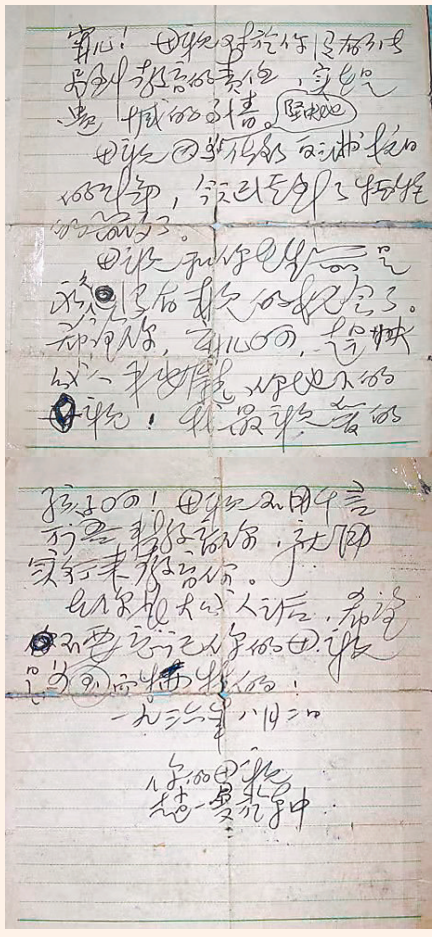 寧儿！母亲对於你没有能
尽到教育的责任，实在是
遗憾的事情。坚决地
母亲因为做了反满抗日
的斗争，今天已经到了牺牲
的前夕了。
母亲和你在生前是
永久没有再见的机会了。
希望你，寧儿啊，赶快
成人来安慰你地下的
母亲！我最亲爱的
孩子啊！母亲不用千言
万语来教育你，就用
实行来教育你。
在你长大成人之后，希望
不要忘记你的母亲
是为国而牺牲的！
一九三六年八月二日
你的母亲
赵一曼於车中